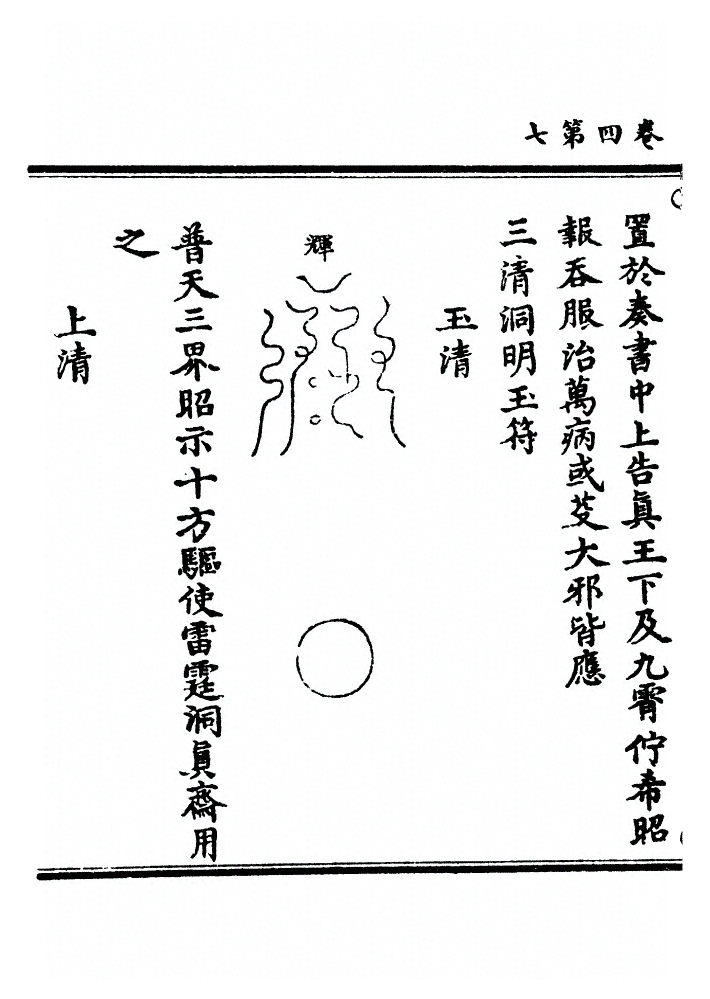 卷四第七
置於奏書中上告眞王下及九霄佇希昭
報吞服治萬病或芟大邪皆應
三清洞明玉符
玉清
輝
普天三界昭示十方驅使雷霆洞眞齋用
之
上清